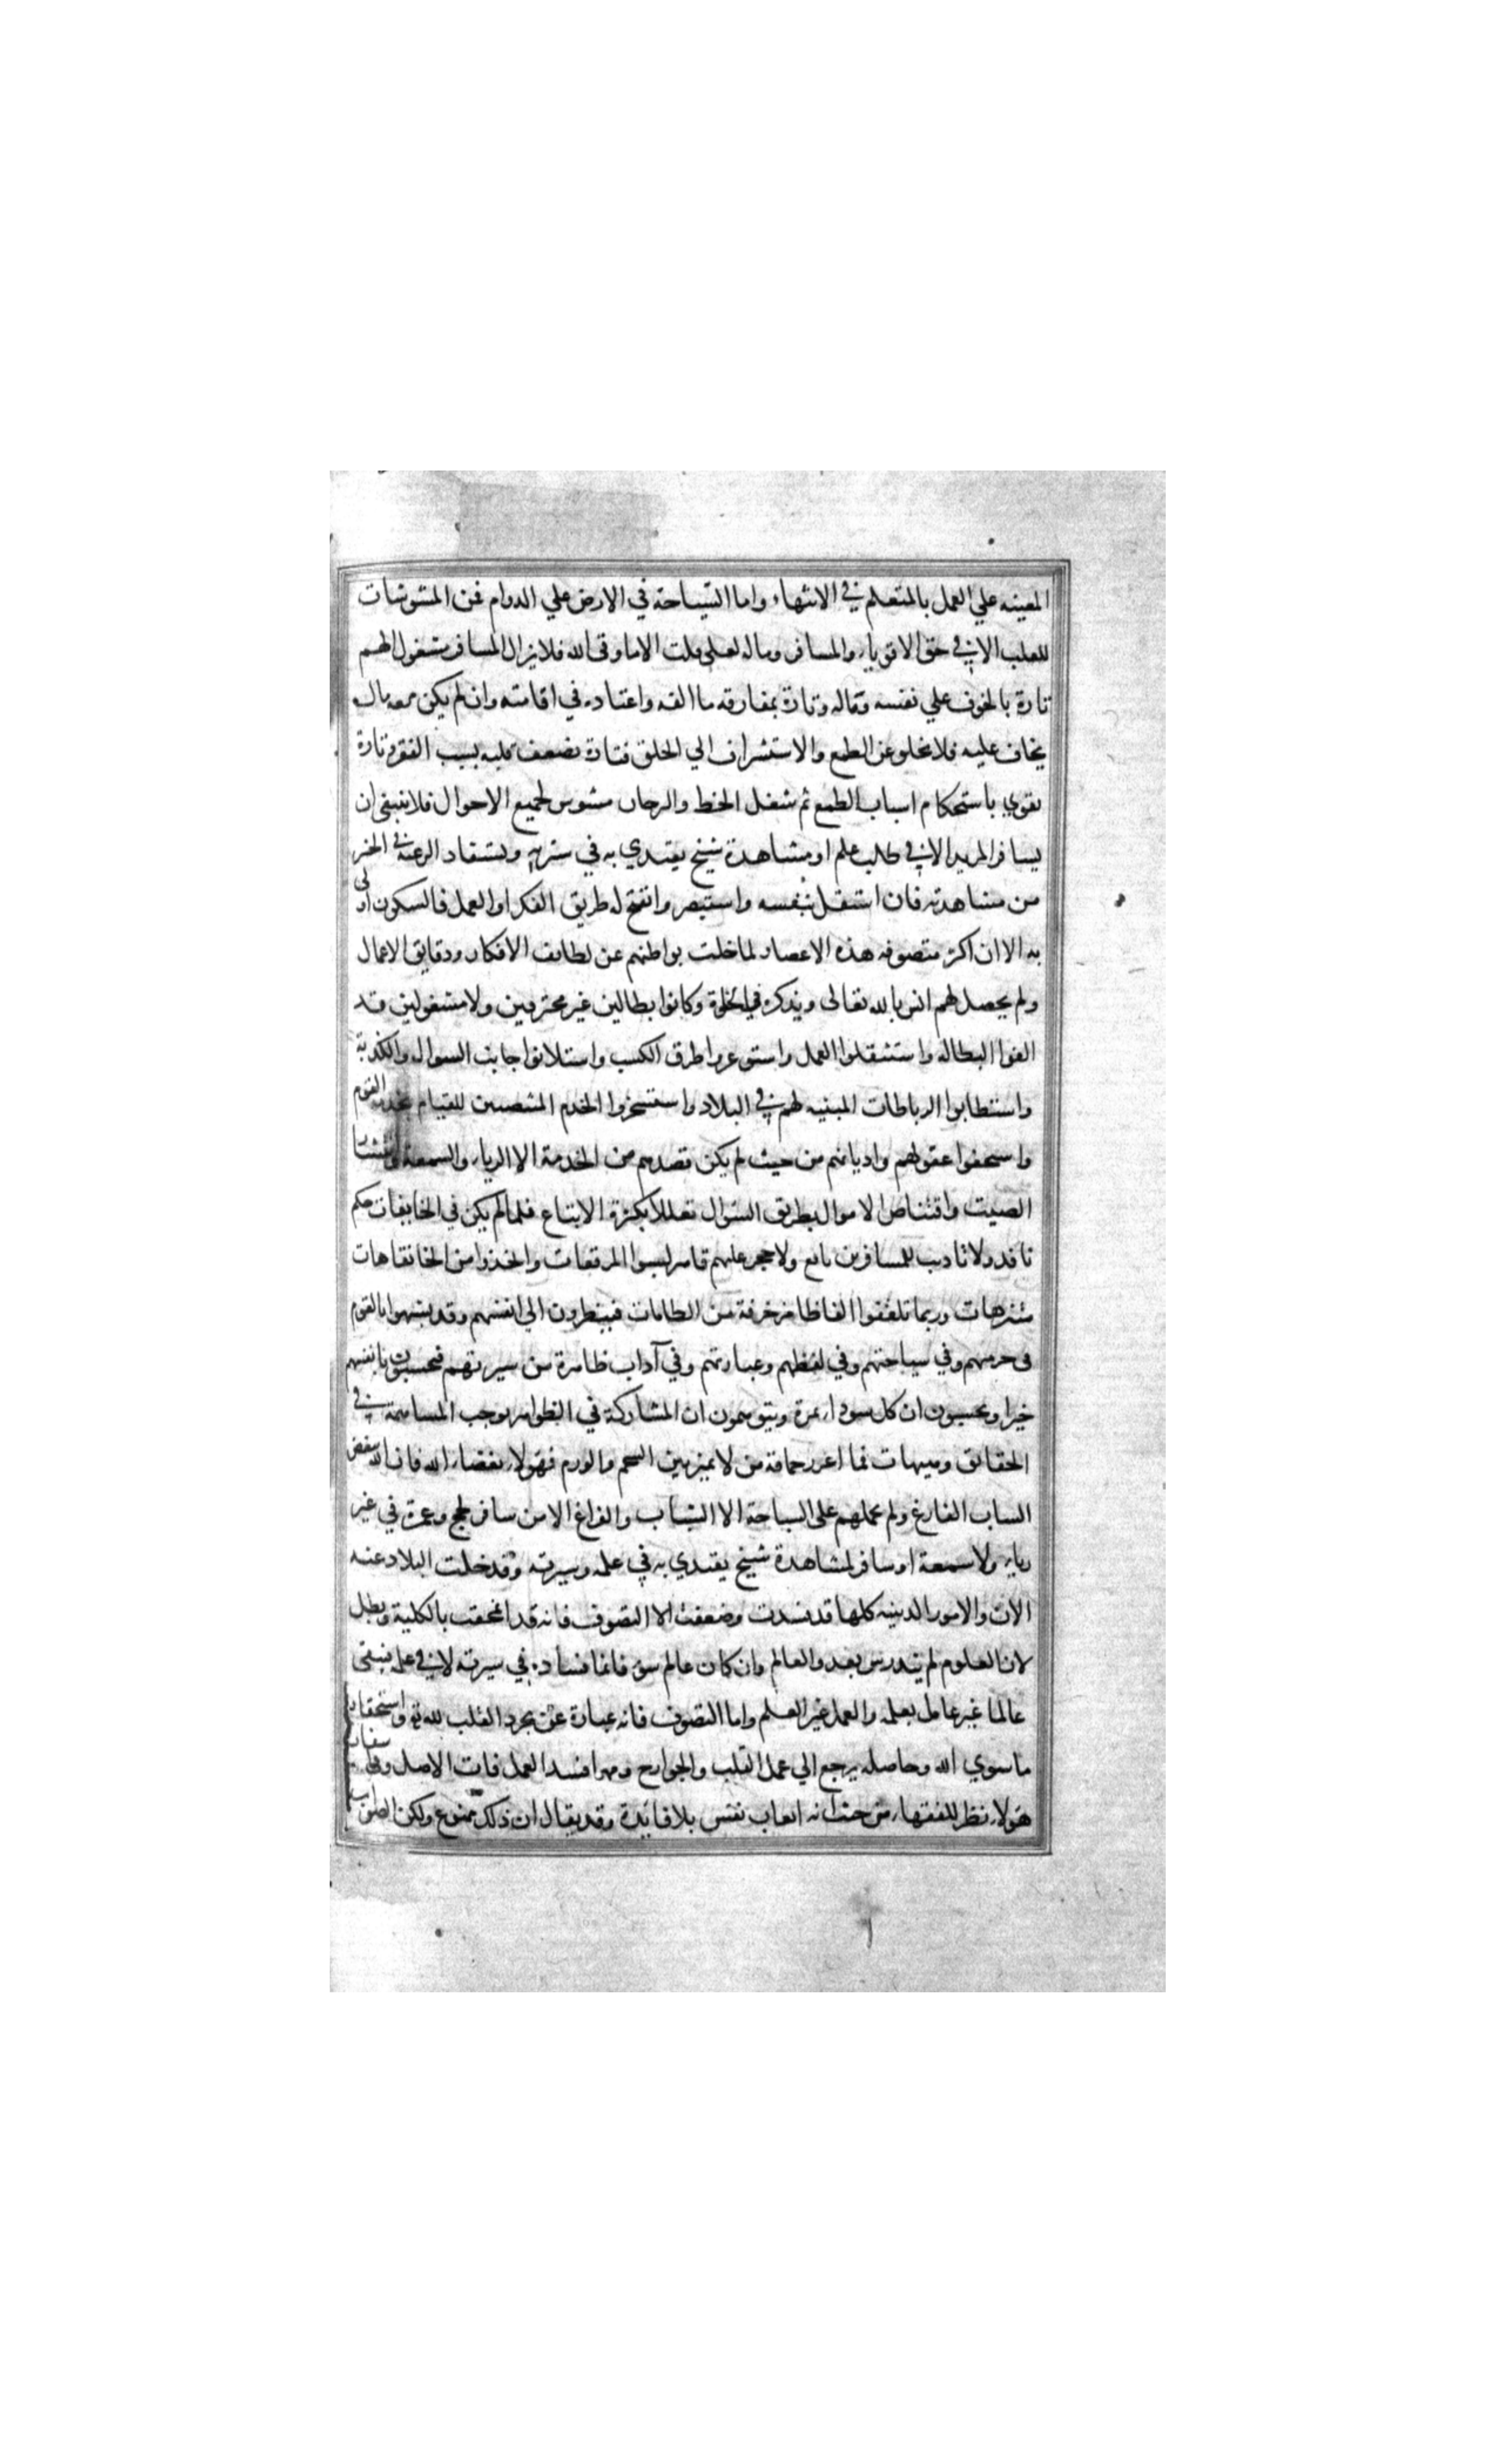 المعينه علي العمل بالمتعلم في الانتهاء واما السياحة في الارض علي الدوام فمن المشوشات
للقلب الا في حق الاقوياء والمسافر وماله لعلى قلت الا ما وقى الله فلا يزال المسافر مشغول الهم
تارة بالخوف علي نفسه وماله وتارة بمفارقه ما الفه واعتاده في اقامته وان لم يكن معه مال
يخاف عليه فلا يخلو عن الطمع والاستشراف الي الخلق فتارة يضعف قلبه بسبب الفقر وتارة
يقوي باستحكام اسباب الطمع ثم شغل الحط والرحال مشوس لجميع الاحوال فلا ينبغي ان
يسافر المريد الا في طلب علم او مشاهدة شيخ يقتدي به في سيرته ويستفاد الرغبه في الخير
من مشاهدته فان اشتغل بنفسه واستبصر وانفتح له طريق الفكر او العمل فالسكون اولى
به الا ان اكثر متصوفه هذه الاعصار لما خلت بواطنهم عن لطائف الافكار ودقايق الاعمال
ولم يحصل لهم انس بالله تعالى وبذكره في الخلوة وكانوا بطالين غير محترفين ولا مشغولين قد
الفوا البطالة واستثقلوا العمل واستوعروا طرق الكسب واستلانوا جانب السوال والكدية
واستطابوا الرباطات المبنيه لهم في البلاد واستسخروا الخدم المنتصبين للقيام بخدمه القوم
واستخفوا عقولهم واديانهم من حيث لم يكن قصدهم من الخدمة الا الرياء والسمعة وانتشار
الصيت واقتناص الاموال بطريق السؤال تعللا بكثرة الاتباع فلما لم يكن في الخانقات حكم
نافذ ولا تاديب للمسافرين نافع ولا حجر عليهم قاهر لبسوا المرقعات واتخذوا من الخانقاهات
متنزهات وربما تلقفوا الفاظا مزخرفة من الطامات فينظرون الي انفسهم وقد تشبهوا بالقوم
في خرقهم وفي سياحتهم وفي لفظهم وعبارتهم وفي آداب ظاهرة من سيرتهم فيحسبون بانفسهم
خيرا ويحسبون ان كل سوداء تمرة ويتوهمون ان المشاركة في الظواهر توجب المساهمة في
الحقائق وهيهات فما اغزر حماقة من لا يميز بين الشحم والورم فهولاء بغضاء الله فان الله يبغض
الشاب الفارغ ولم يحملهم على السياحة الا الشباب والفراغ الا من سافر لحج وعمرة في غير
رياء ولا سمعة او سافر لمشاهدة شيخ يقتدي به في علمه وسيرته وقد خلت البلاد عنه
الان والامور الدينيه كلها قد فسدت وضعفت الا التصوف فانه قد انمحقت بالكلية وبطل
لان العلوم لم تندرس بعد والعالم وان كان عالم سوء فانما فساده في سيرته لا في علمه فيبقى
عالما غير عامل بعلمه والعمل غير العلم واما التصوف فانه عبارة عن تجرد القلب لله تع واستحقار
ما سوي الله وحاصله يرجع الي عمل القلب والجوارح ومهما فسد العمل فات الاصل وفي سفار
هولاء نظر للفقهاء من حيث انه اتعاب نفس بلا فائدة وقد يقال ان ذلك ممنوع ولكن